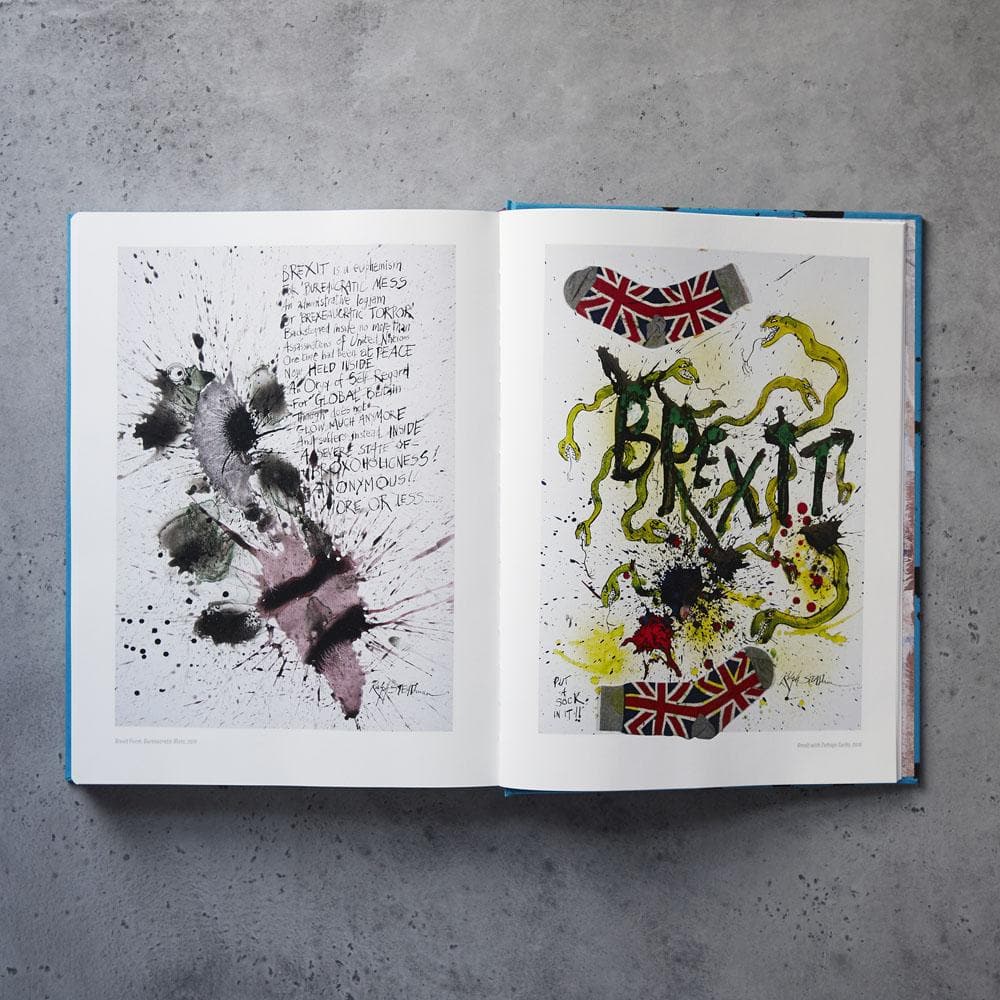 BREXIT is a euphemism
FOR 'BUREAUCRATIC MESS
An administrative logjam
OF BREXEAUCRATIC TORPOR
Backstopped inside no more than
Assassinations of United Nations
One time had been at PEACE
Now HELD INSIDE
An Orgy of Self Regard
For 'GLOBAL Britain
Though does not
GLOW MUCH ANYMORE
And suffers instead INSIDE
A SEVERE STATE OF-
ANONYMOUS!.
MORE OR LESS......
Ralph STEADman
Brexit Poem, Bureaucratic Mess, 2019
BREXIT
PUT
A
SOCK
IN IT!!
Ralph STEADman
Brexit with Collage Socks, 2019